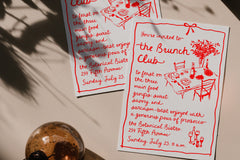 You're invited to
the Brunch
Club
to feast on
the three
main food
groups: sweet,
savory and
sarcasm-best enjoyed with
a generous pour of prosecco
the Botanical Bistro
234 Fifth Avenue
Sunday July 23, 11 a.m.
Club
to feast on
the three
main food
groups: sweet,
savory and
sarcasm-best enjoyed
a generous pour of
the Botanical Bistro
234 Fifth Avenue
Sunday July 23